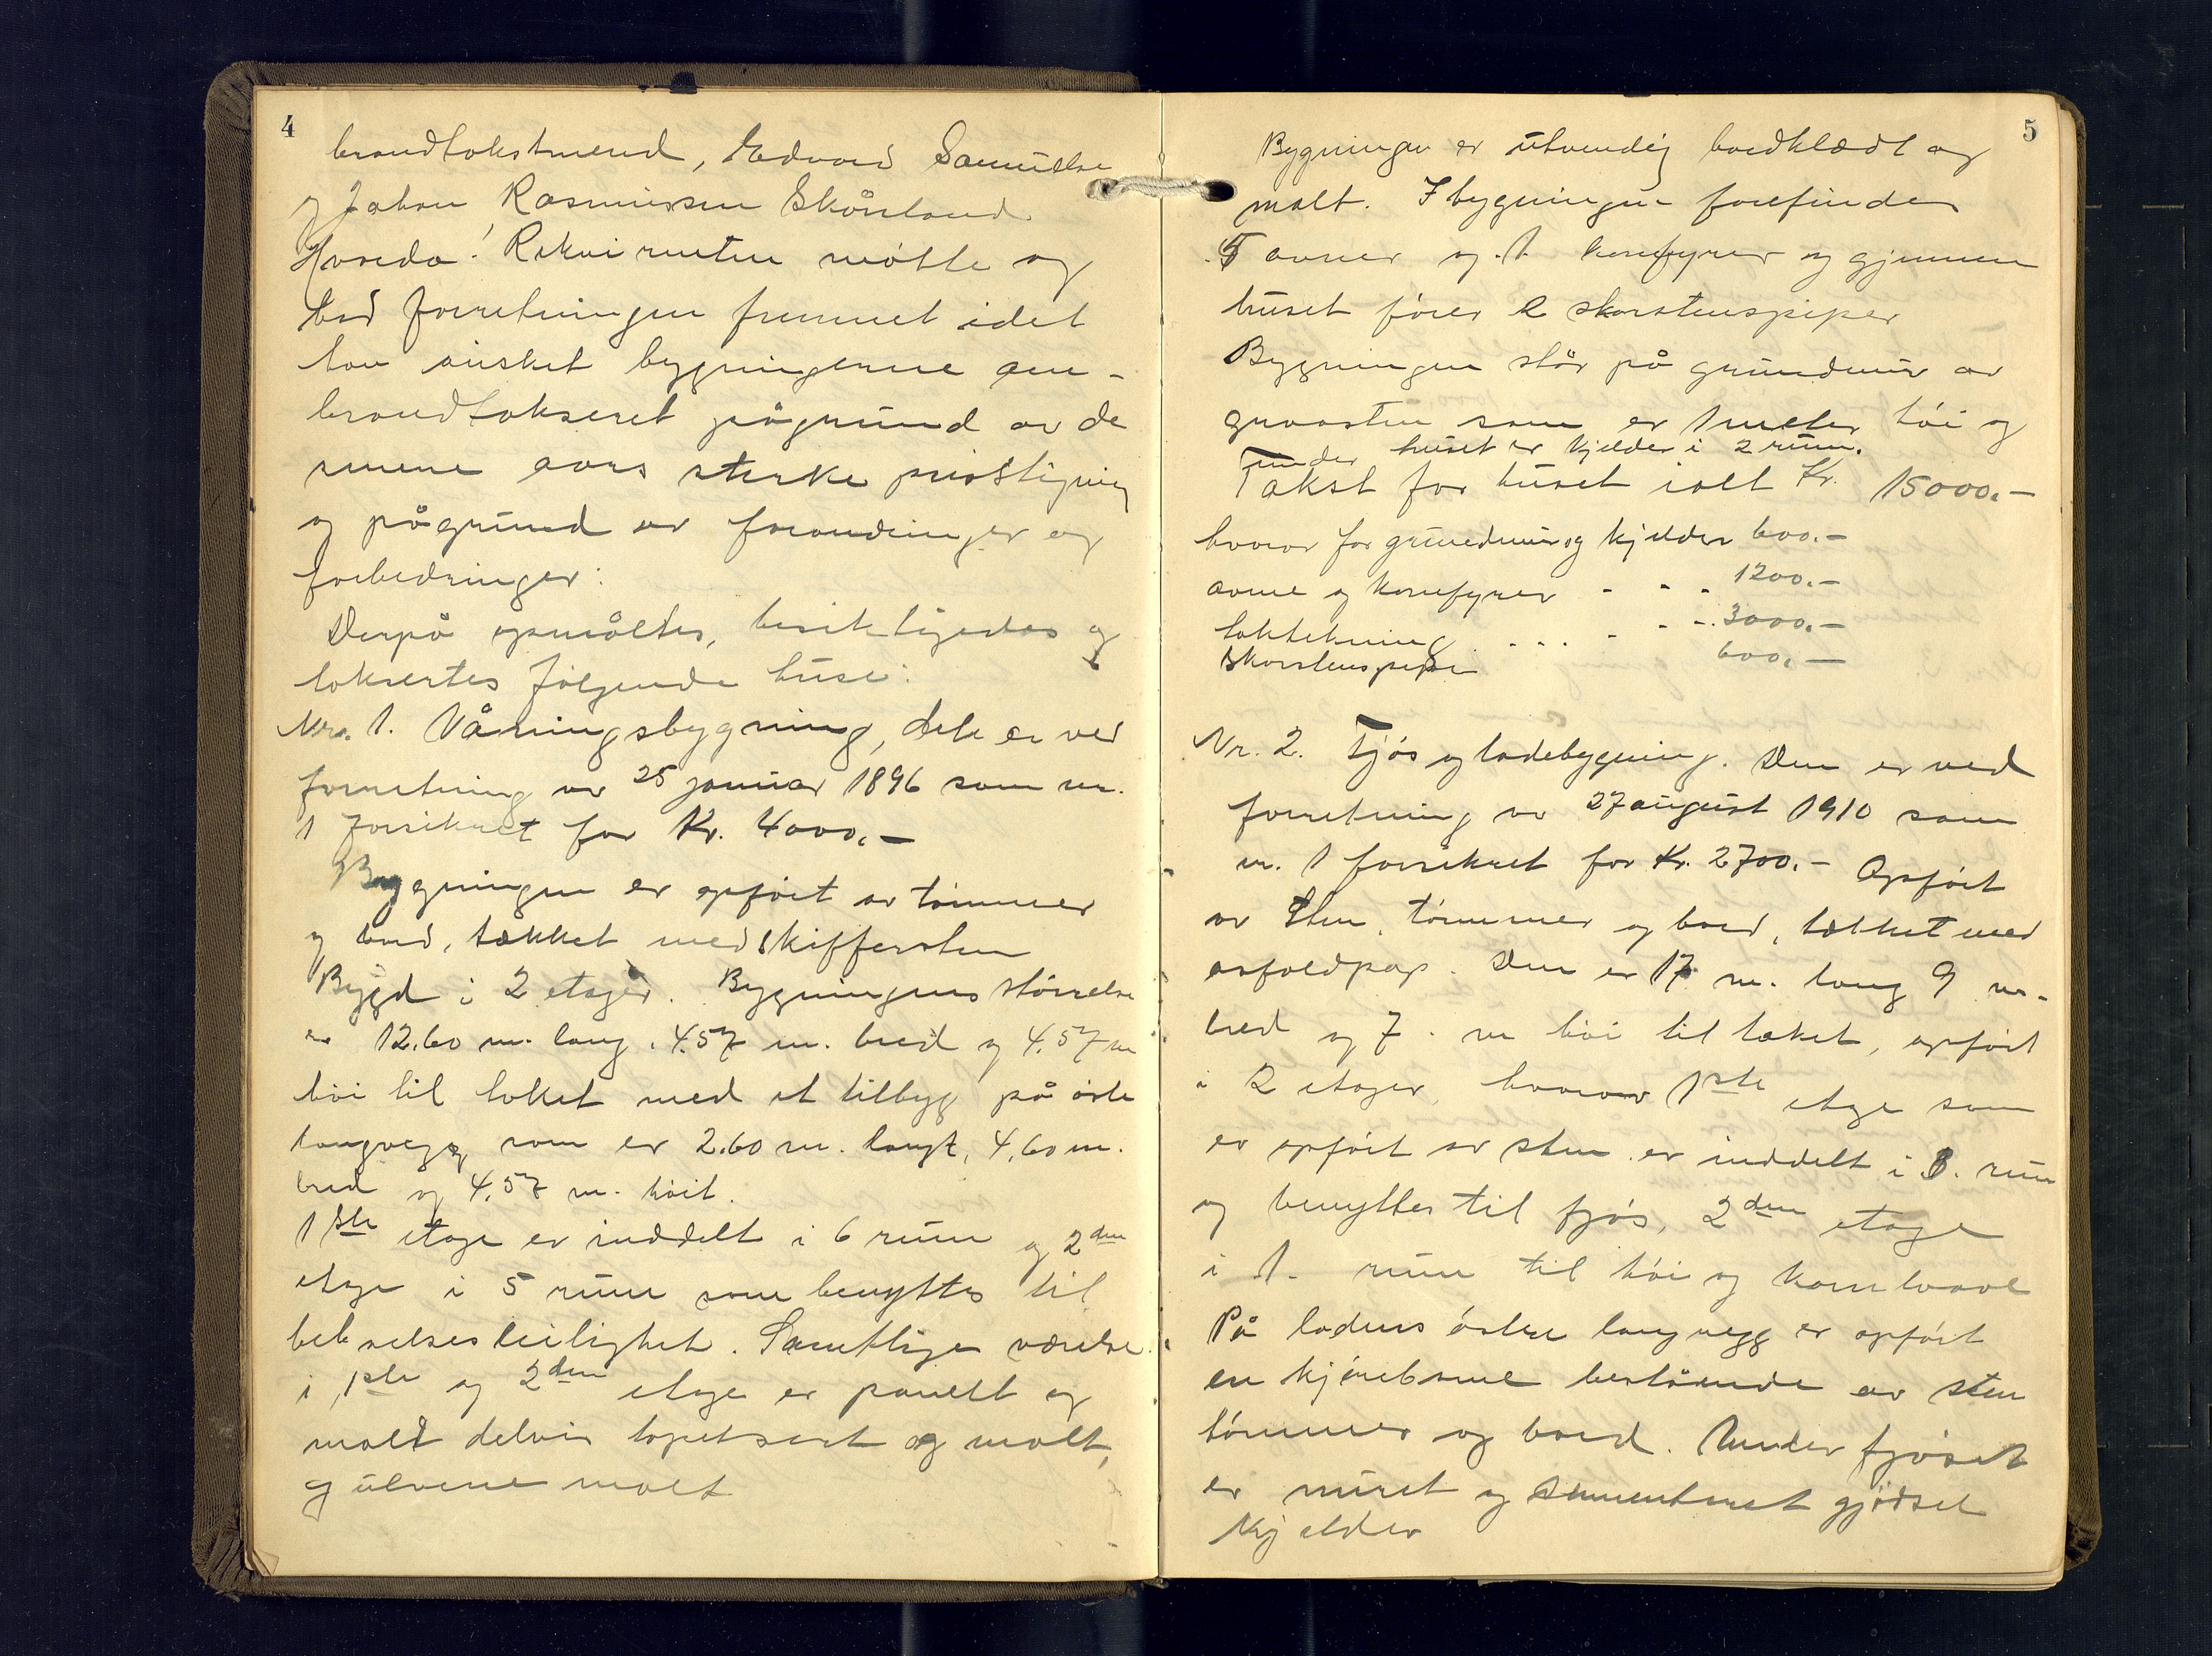 4
brandtakstmend, Edvard Samuelse
og Johan Rasmussen Skånland
Rekvirenten møtte og
bad forretningen fremmet idet
han ønsket bygningerne om-
brandtakseret pågrund av de
senere aars sterke prisstigning
og pågrund av forandringer og
forbedringer:
Derpå opmåltes, besiktigedes og
taksertes følgende huse:
Nr. 1. Våningsbygning, dete er ved
forretning av 25 januar 1896 som nr.
1 forsikret for Kr. 4000.-
Bygningen er opført av tømmer
og bord, tækket med skiffersten
Bygd i 2 etager. Bygningens størrelse
er 12.60 m. lang. 4.57 m. bred og 4.57 m
høi til taket med et tilbygg på øste
langvegg som er 2.60 m. langt, 4.60 m.
bred og 4.57 m. høit.
1ste etage er inddelt i 6 rum og 2den
etage i 5 rum som benyttes til
beboelsesleilighet. Samtlige værelse
i 1ste og 2den etage er panelt og
malt delvis tapetsert og malt,
gulvene malt
5
Bygningen er utvendig bordklædt og
malt. I bygningen forefindes
5 ovner og 1 komfyrer og gjennem
huset fører 2 skorstenspiper
Bygningen står på grundmur av
graasten som er 1 meter høi og
under huset er kjelder i 2 rum.
Takst for huset ialt Kr. 15000.-
hvorav for grundmur og kjelder 600.-
ovne og komfyrer - - - 1200.-
taktekning . . . . - - - 3000.-
Skorstenspipe 600.-
Nr. 2. Fjøs og ladebygning. Den er ved
forretning av 27 august 1910 som
nr. 1 forsikret for Kr. 2700.- Opført
av Sten, tømmer og bord, tækket med
asfaldpap. Den er 17 m. lang 9 m.
bred og 7. m høi til taket, opført
i 2 etager, hvorav 1ste etage som
er opført av sten er inddelt i 3. rum
og benyttes til fjøs, 2den etage
i 1. rum til høi og korn
På ladens østre langvegg er opført
en kjørebro bestående av sten
tømmer og bord. Under fjøset
er muret og sementeret gjødsel
kjelder